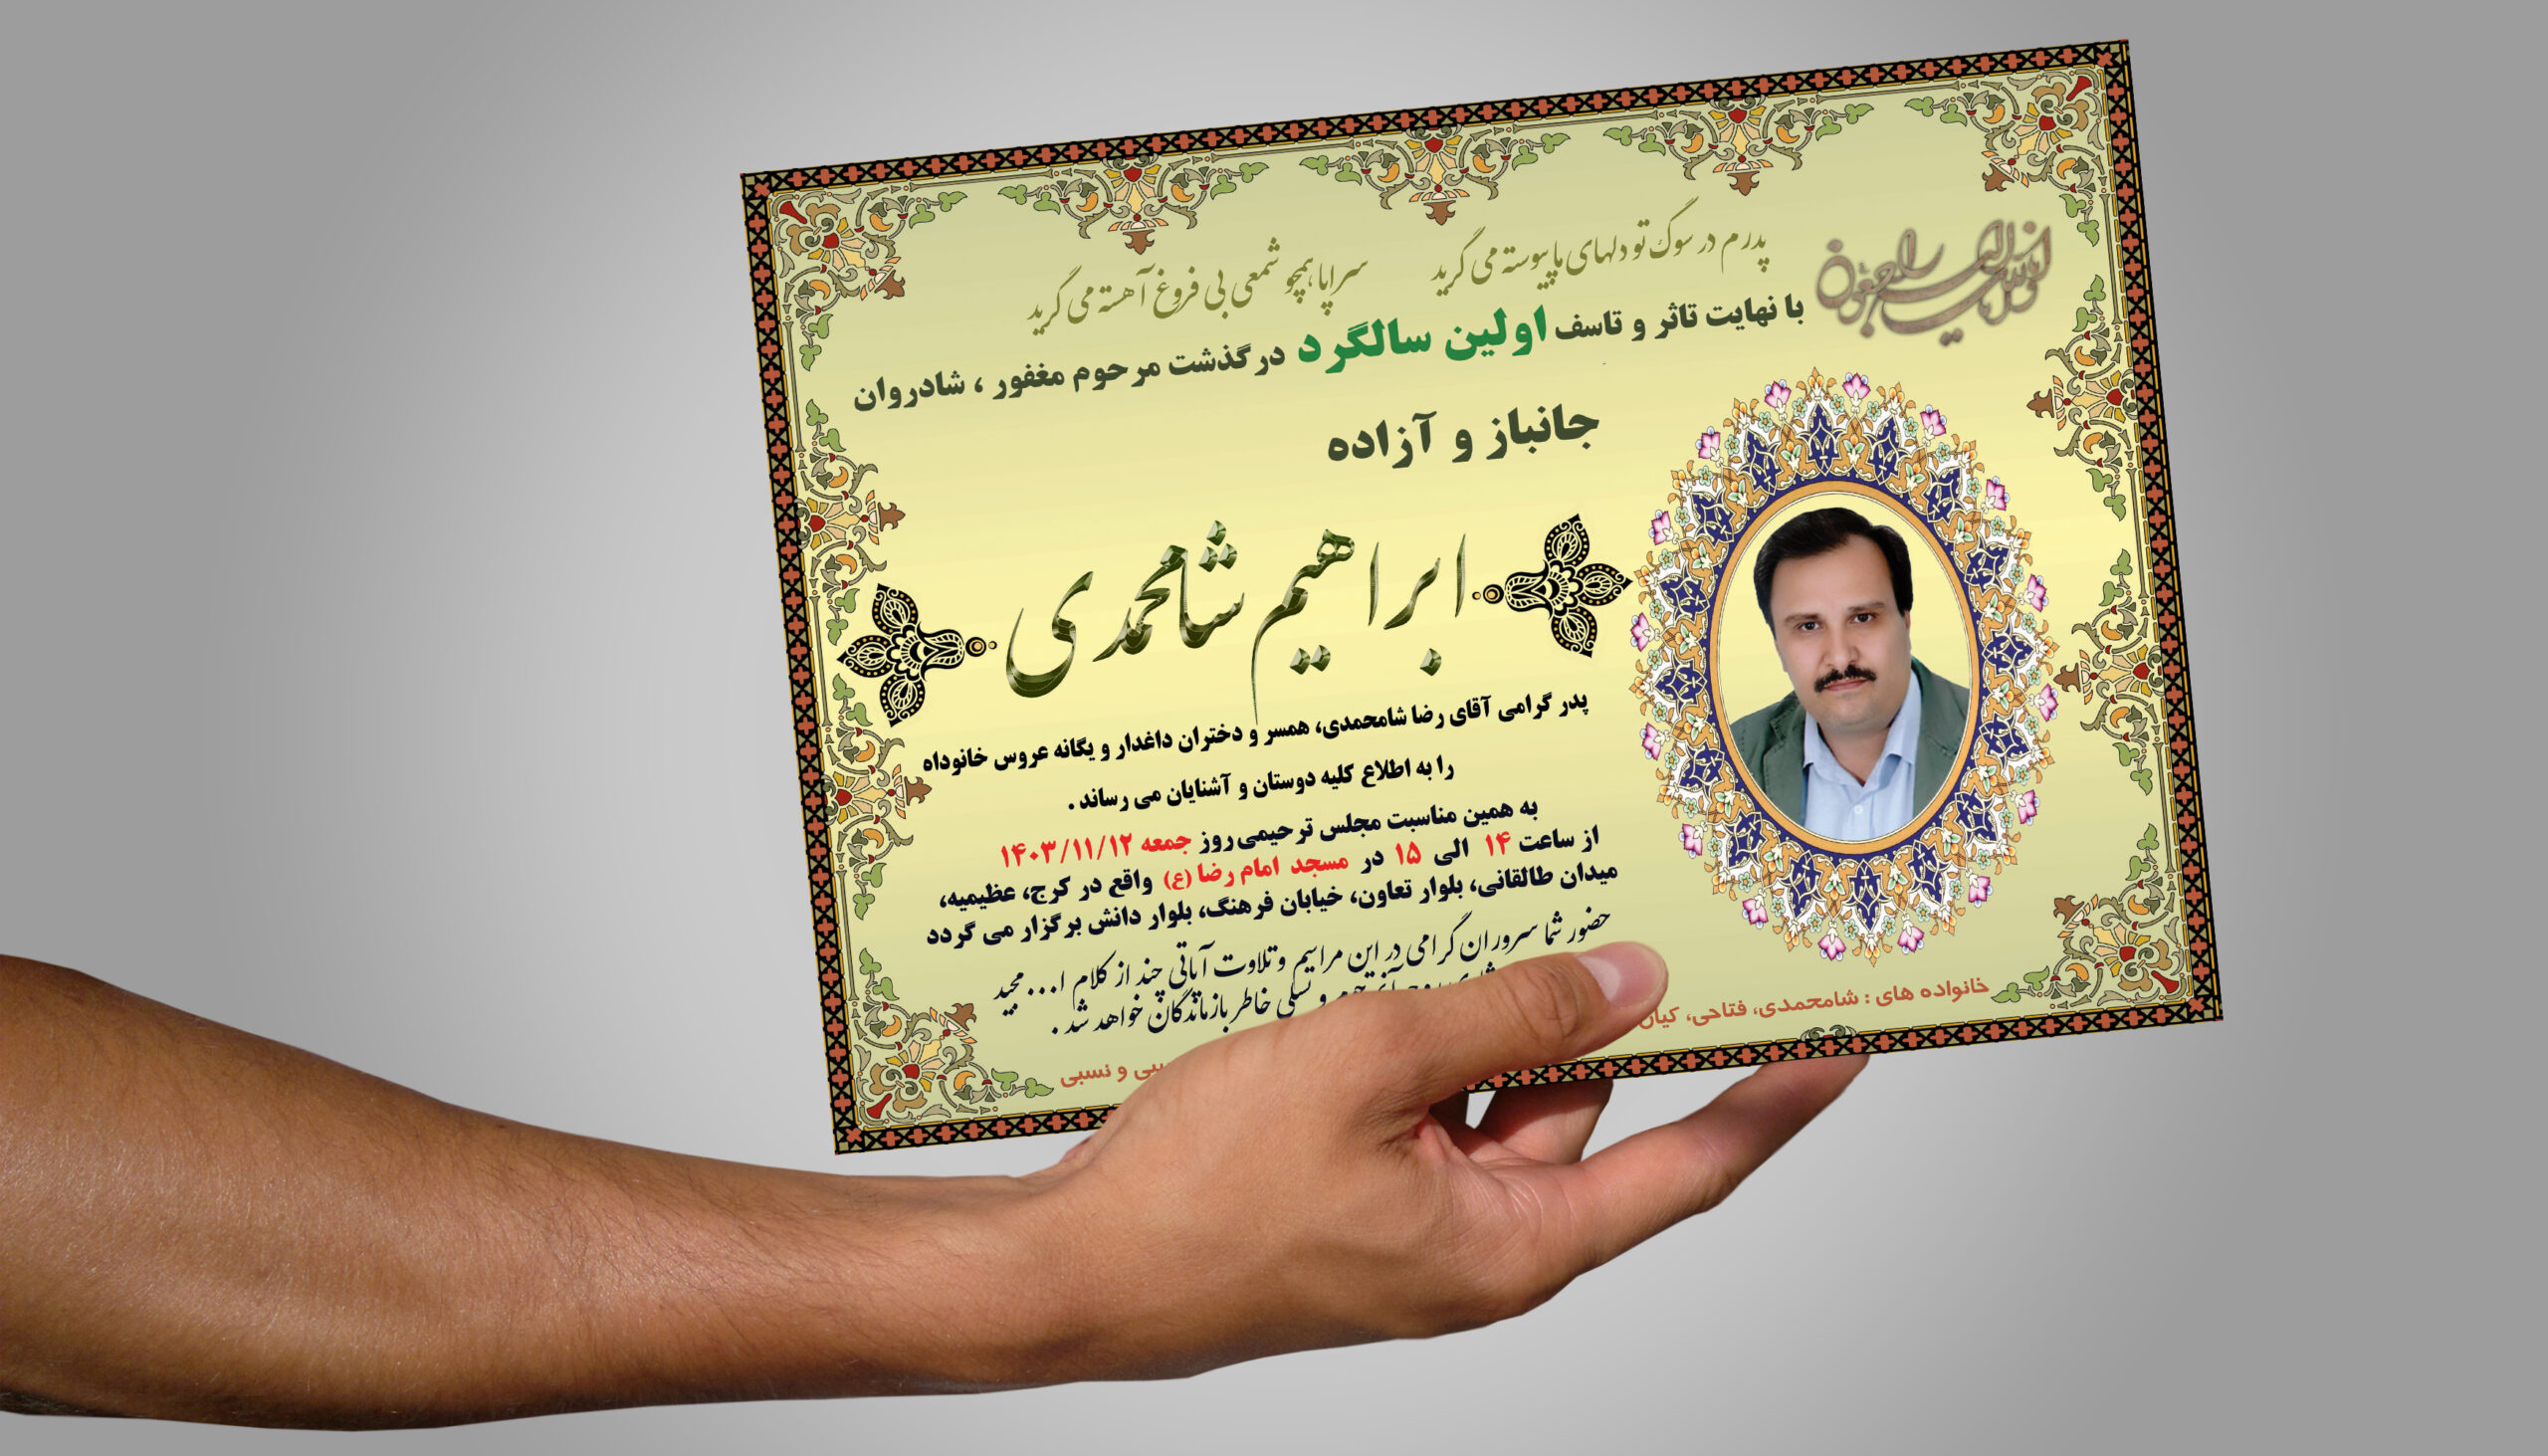 انا لله و انا الیه راجعون
پدرم در سوگ تو دلهای ما پیوسته می گرید سراپا همچو شمعی بی فروغ آهسته می گرید
با نهایت تاثر و تاسف اولین سالگرد درگذشت مرحوم مغفور ، شادروان
جانباز و آزاده
ابراهیم شامحمدی
پدر گرامی آقای رضا شامحمدی، همسر و دختران داغدار و یگانه عروس خانوداه
را به اطلاع کلیه دوستان و آشنایان می رساند .
به همین مناسبت مجلس ترحیمی روز جمعه ۱۴۰۳/۱۱/۱۲
از ساعت ۱۴ الی ۱۵ در مسجد امام رضا (ع) واقع در کرج، عظیمیه،
میدان طالقانی، بلوار تعاون، خیابان فرهنگ، بلوار دانش برگزار می گردد
حضور شما سروران گرامی در این مراسم و تلاوت آیاتی چند از کلام ا... مجید
و تسلی خاطر بازماندگان خواهد شد .
خانواده های : شامحمدی، فتاحی،
و نسبی